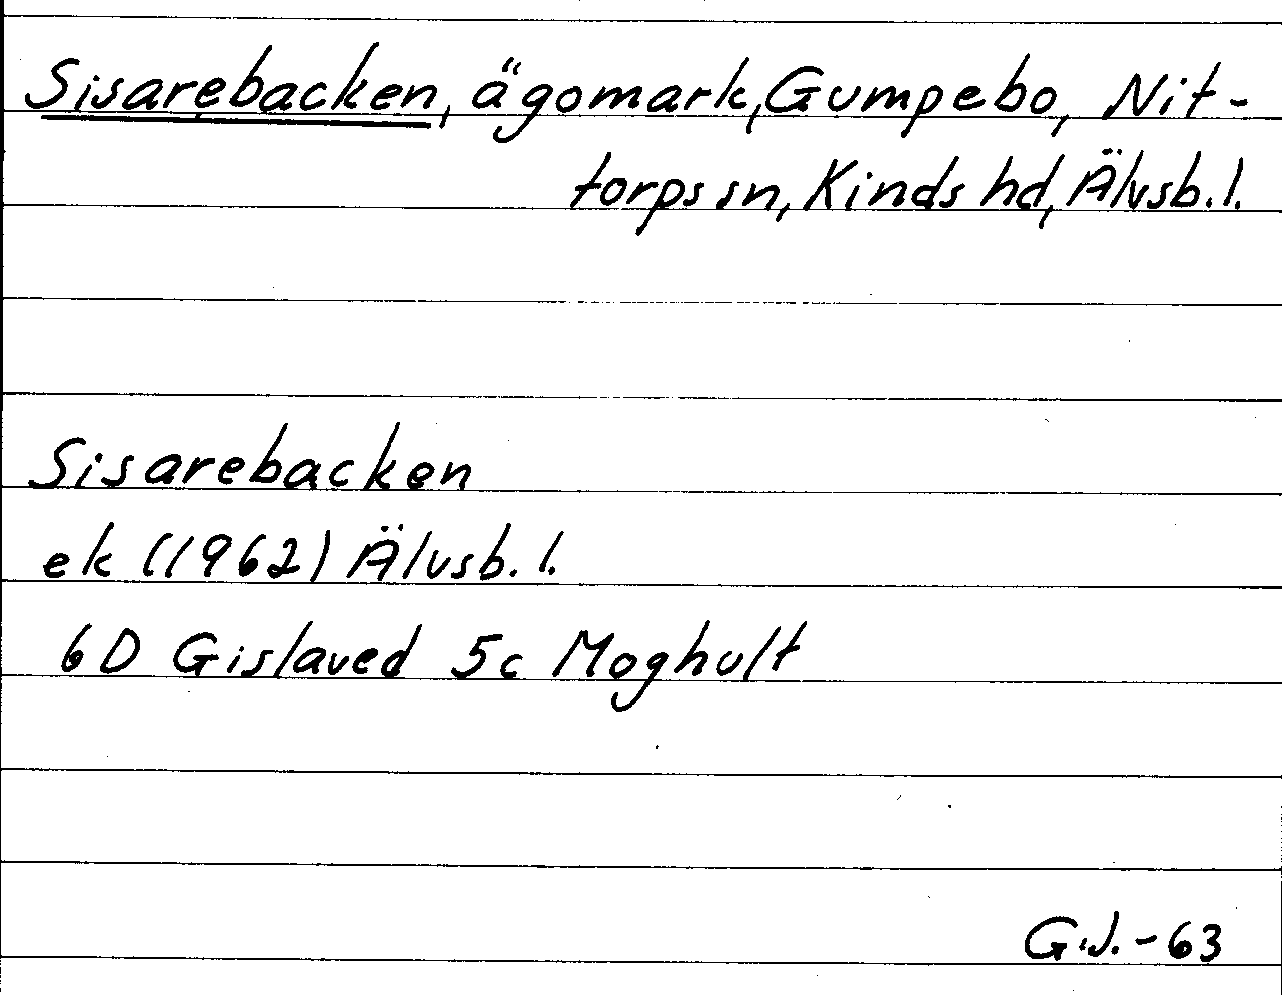 Sisarebacken, ägomark, Gumpebo, Nit-
torps sn, Kinds hd, Älvsb. l.
Sisarebacken
ek (1962) Älvsb. l.
6D Gislaved 5c Moghult
G.J. - 63